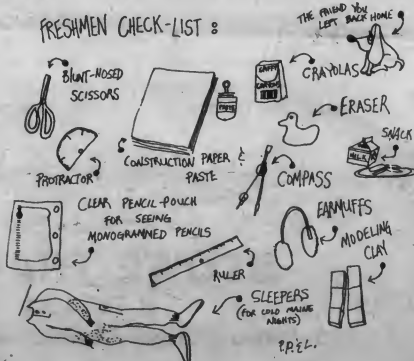 FRESHMEN CHECK-LIST :
THE FRIEND YOU
LEFT BACK HOME
BLUNT-NOSED
SCISSORS
CRAYOLAS
ERASER
SNACK
MILK
PASTE
PROTRACTOR
CONSTRUCTION PAPER &
PASTE
COMPASS
CLEAR PENCIL-POUCH
FOR SEEING
MONOGRAMMED PENCILS
EARMUFFS
MODELING
CLAY
RULER
SLEEPERS
(FOR COLD MAINE
NIGHTS)
P.P.&L.